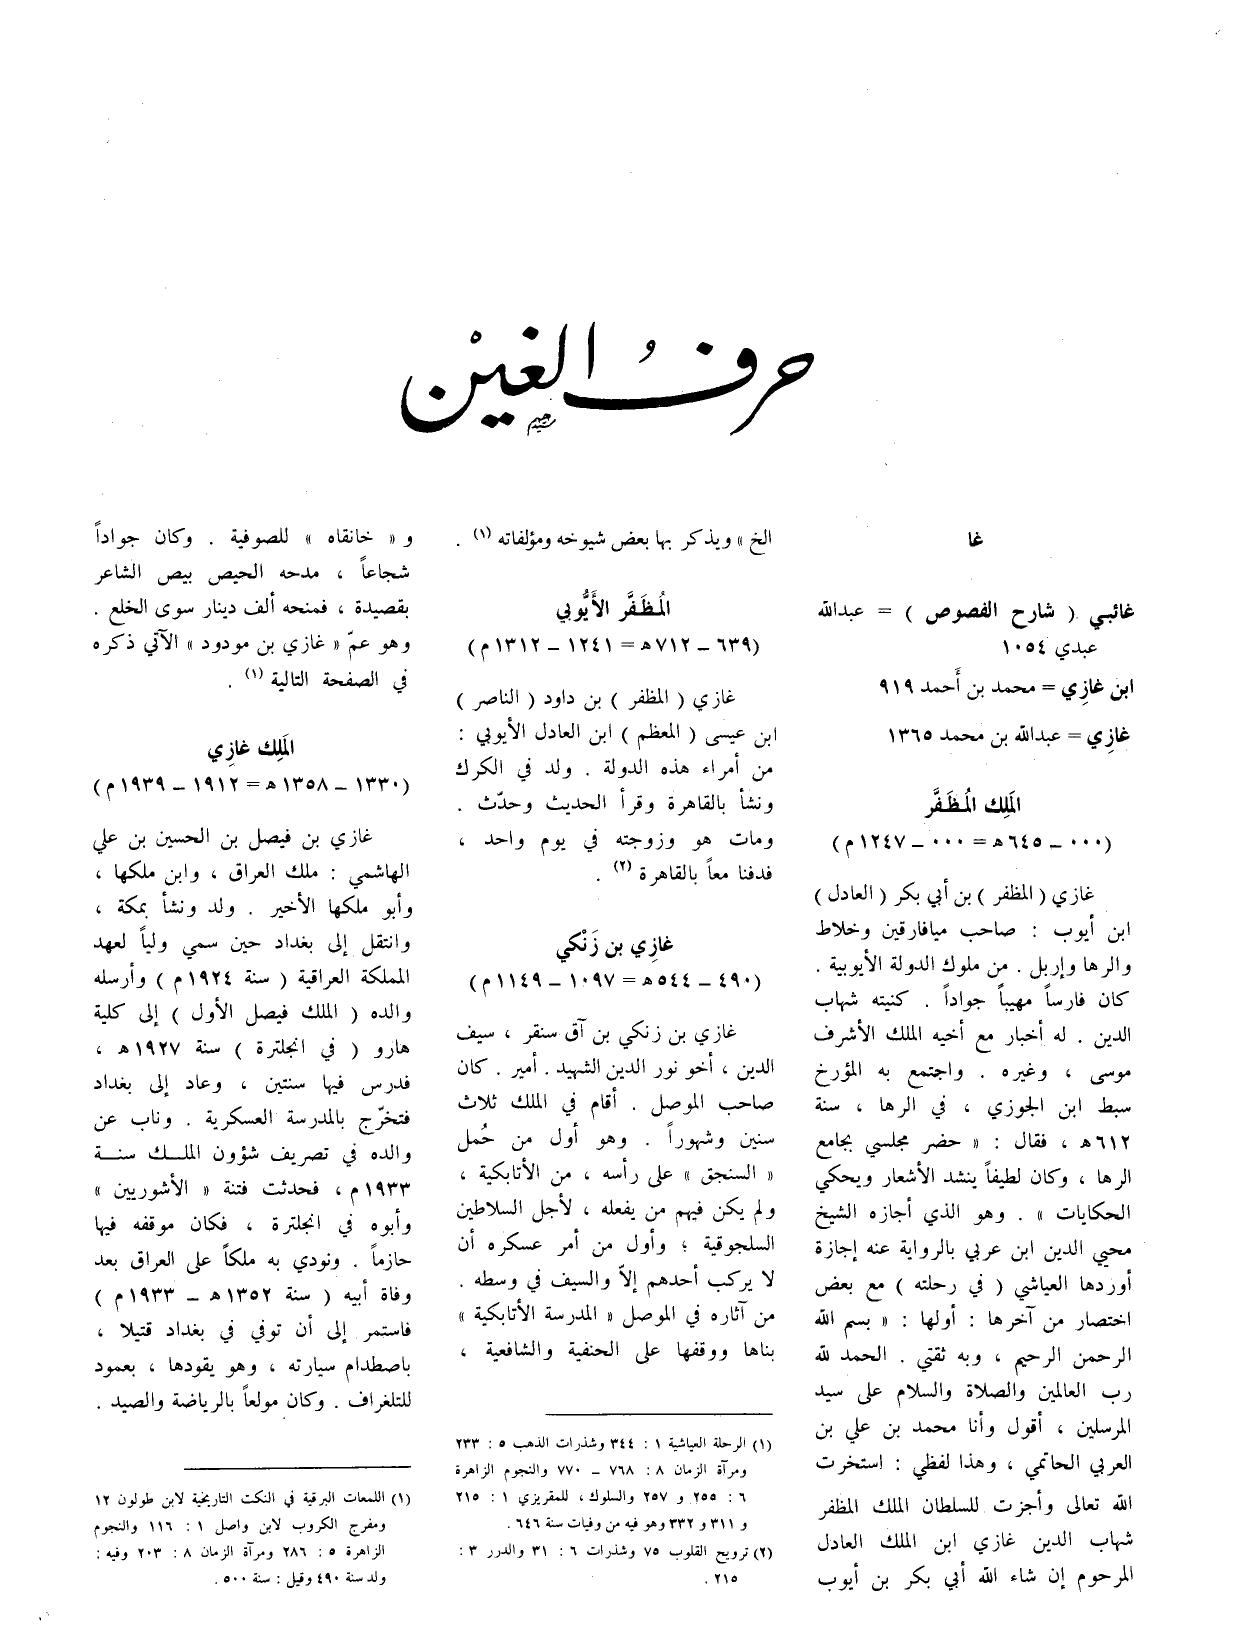 حرفُ الغينْ
غا
غائبي ( شارح الفصوص ) = عبدالله
عبدي ١٠٥٤
ابن غازِي = محمد بن أَحمد ٩١٩
غازِي = عبدالله بن محمد ١٣٦٥
المَلِك المُظَفَّر
(٠٠٠ ــ ٦٤٥ هـ = ٠٠٠ ــ ١٢٤٧ م)
غازي ( المظفر ) بن أبي بكر ( العادل )
ابن أيوب : صاحب ميافارقين وخلاط
والرها وإربل . من ملوك الدولة الأيوبية .
كان فارساً مهيباً جواداً . كنيته شهاب
الدين . له أخبار مع أخيه الملك الأشرف
موسى ، وغيره . واجتمع به المؤرخ
سبط ابن الجوزي ، في الرها ، سنة
٦١٢ هـ ، فقال : « حضر مجلسي بجامع
الرها ، وكان لطيفاً ينشد الأشعار ويحكي
الحكايات » . وهو الذي أجازه الشيخ
محيي الدين ابن عربي بالرواية عنه إجازة
أوردها العياشي ( في رحلته ) مع بعض
اختصار من آخرها : أولها : « بسم الله
الرحمن الرحيم ، وبه ثقتي . الحمد لله
رب العالمين والصلاة والسلام على سيد
المرسلين ، أقول وأنا محمد بن علي بن
العربي الحاتمي ، وهذا لفظي : استخرت
الله تعالى وأجزت للسلطان الملك المظفر
شهاب الدين غازي ابن الملك العادل
المرحوم إن شاء الله أبي بكر بن أيوب
الخ » ويذكر بها بعض شيوخه ومؤلفاته (١) .
المُظَفَّر الأَيُّوبي
(٦٣٩ ــ ٧١٢ هـ = ١٢٤١ ــ ١٣١٢ م)
غازي ( المظفر ) بن داود ( الناصر )
ابن عيسى ( المعظم ) ابن العادل الأيوبي :
من أمراء هذه الدولة . ولد في الكرك
ونشأ بالقاهرة وقرأ الحديث وحدّث .
ومات هو وزوجته في يوم واحد ،
فدفنا معاً بالقاهرة (٢) .
غازِي بن زَنْكي
(٤٩٠ ــ ٥٤٤ هـ = ١٠٩٧ ــ ١١٤٩ م)
غازي بن زنكي بن آق سنقر ، سيف
الدين ، أخو نور الدين الشهيد . أمير . كان
صاحب الموصل . أقام في الملك ثلاث
سنين وشهوراً . وهو أول من حُمل
« السنجق » على رأسه ، من الأتابكية ،
ولم يكن فيهم من يفعله ، لأجل السلاطين
السلجوقية ؛ وأول من أمر عسكره أن
لا يركب أحدهم إلاّ والسيف في وسطه .
من آثاره في الموصل « المدرسة الأتابكية »
بناها ووقفها على الحنفية والشافعية ،
(١) الرحلة العياشية ١ : ٣٤٤ وشذرات الذهب ٥ : ٢٣٣
ومرآة الزمان ٨ : ٧٦٨ ــ ٧٧٠ والنجوم الزاهرة
٦ : ٢٥٥ و ٢٥٧ والسلوك ، للمقريزي ١ : ٢١٥
و ٣١١ و ٣٣٢ وهو فيه من وفيات سنة ٦٤٦ .
(٢) ترويح القلوب ٧٥ وشذرات ٦ : ٣١ والدرر ٣ :
٢١٥ .
و « خانقاه » للصوفية . وكان جواداً
شجاعاً ، مدحه الحيص بيص الشاعر
بقصيدة ، فمنحه ألف دينار سوى الخلع .
وهو عمّ « غازي بن مودود » الآتي ذكره
في الصفحة التالية (١) .
المَلِك غازِي
(١٣٣٠ ــ ١٣٥٨ هـ = ١٩١٢ ــ ١٩٣٩ م)
غازي بن فيصل بن الحسين بن علي
الهاشمي : ملك العراق ، وابن ملكها ،
وأبو ملكها الأخير . ولد ونشأ بمكة ،
وانتقل إلى بغداد حين سمي ولياً لعهد
المملكة العراقية ( سنة ١٩٢٤ م ) وأرسله
والده ( الملك فيصل الأول ) إلى كلية
هارو ( في انجلترة ) سنة ١٩٢٧ هـ ،
فدرس فيها سنتين ، وعاد إلى بغداد
فتخرّج بالمدرسة العسكرية . وناب عن
والده في تصريف شؤون الملك سنة
١٩٣٣ م ، فحدثت فتنة « الأشوريين »
وأبوه في انجلترة ، فكان موقفه فيها
حازماً . ونودي به ملكاً على العراق بعد
وفاة أبيه ( سنة ١٣٥٢ هـ ــ ١٩٣٣ م )
فاستمر إلى أن توفي في بغداد قتيلا ،
باصطدام سيارته ، وهو يقودها ، بعمود
للتلغراف . وكان مولعاً بالرياضة والصيد .
(١) اللمعات البرقية في النكت التاريخية لابن طولون ١٢
ومفرج الكروب لابن واصل ١ : ١١٦ والنجوم
الزاهرة ٥ : ٢٨٦ ومرآة الزمان ٨ : ٢٠٣ وفيه :
ولد سنة ٤٩٠ وقيل : سنة ٥٠٠ .